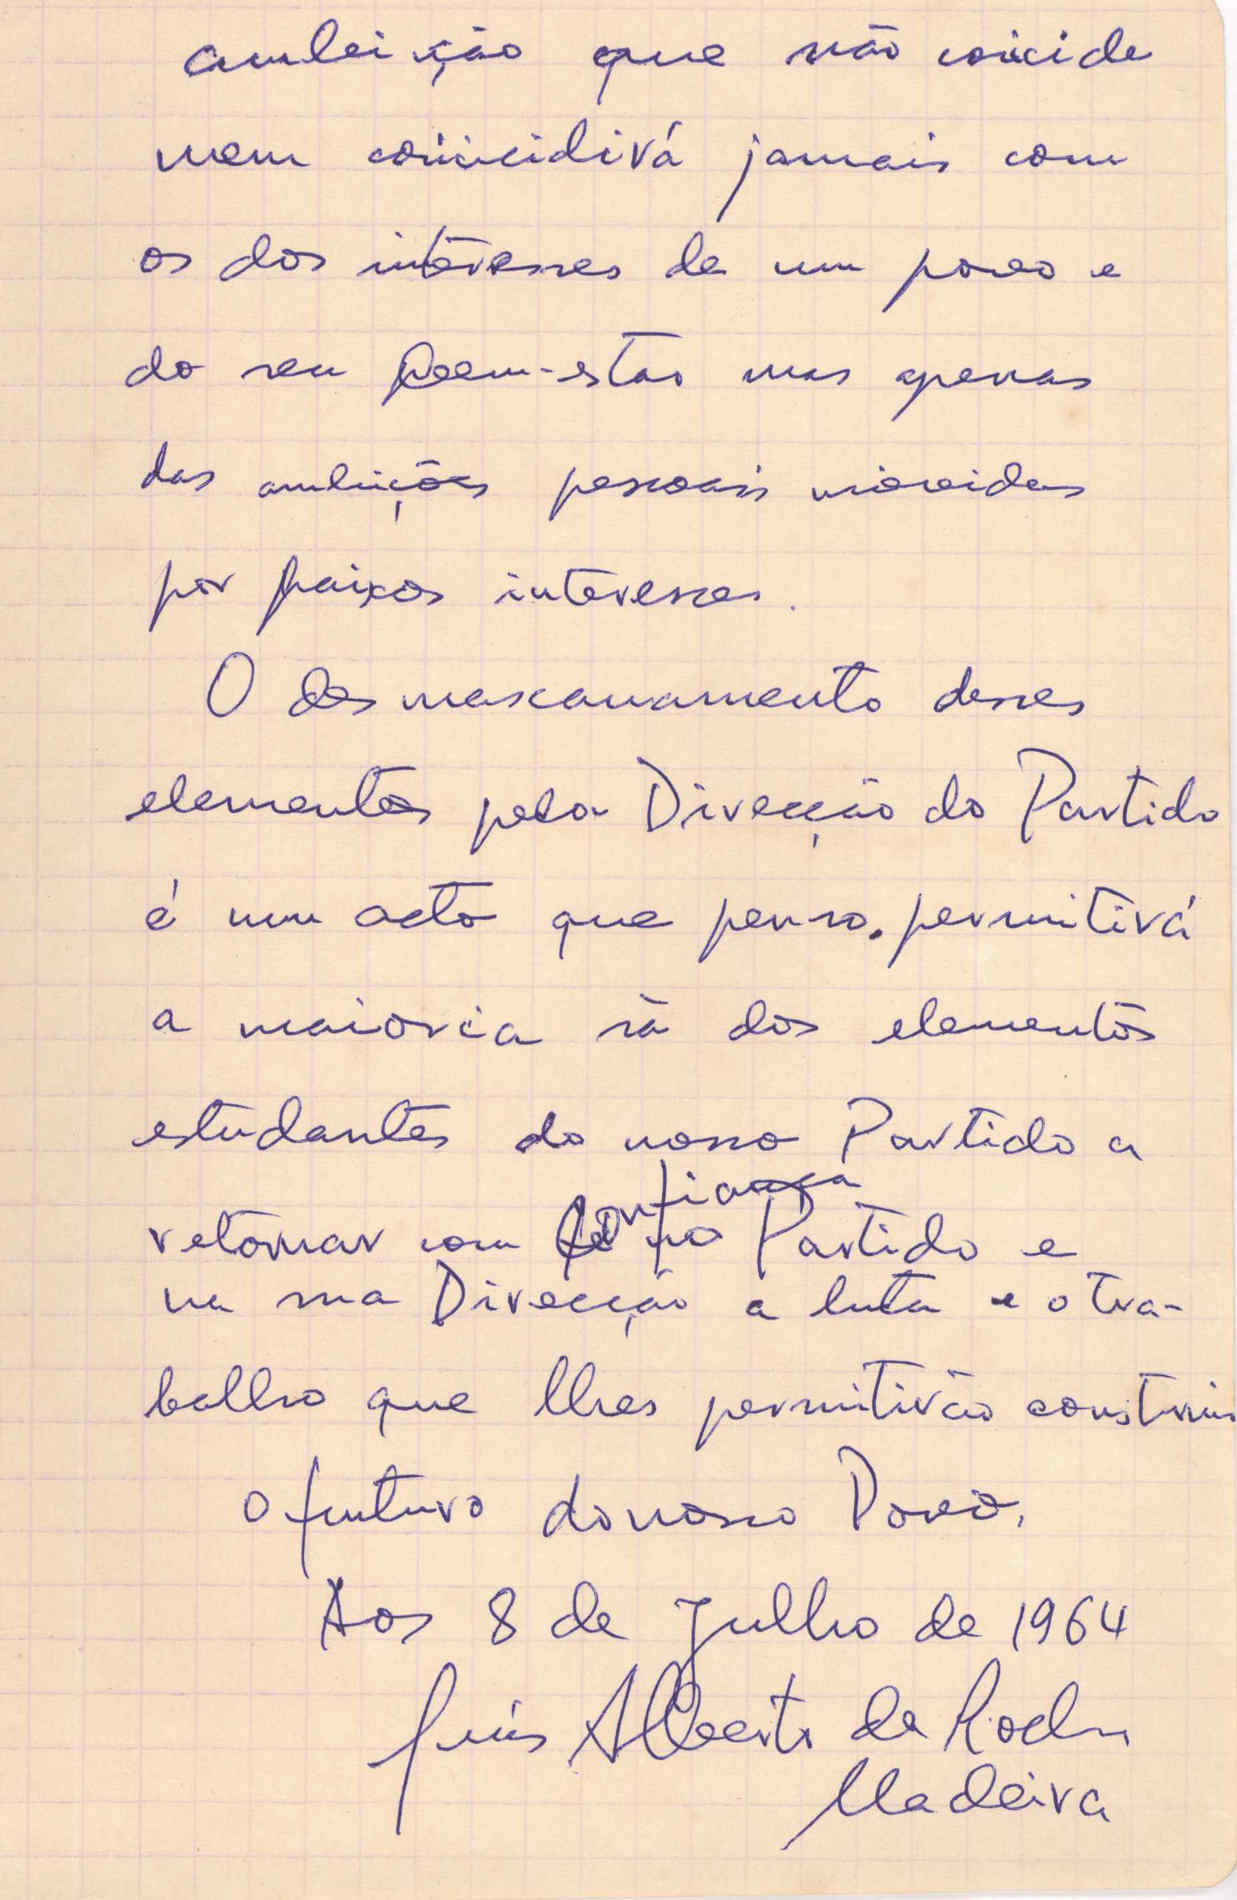 ambição que não coicide
nem coincidirá jamais com
os dos interesses de um povo e
do seu bem-estar mas apenas
das ambições pessoais movidas
por baixos interesses.
O desmascaramento desses
elementos pela Direcção do Partido
é um acto que penso. permitirá
a maioria sã dos elementos
estudantes do nosso Partido a
retomar com confiança no Partido e
na sua Direcção a luta e o tra-
balho que lhes permitirão construir
o futuro do nosso Povo.
Aos 8 de Julho de 1964
Luís Alberto da Rocha
Madeira